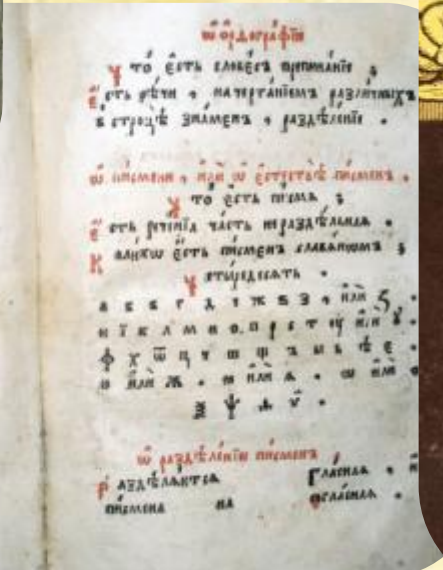 ѡ҆ ѻ҆рдогра́фїи
Что́ є҆сть слове́съ препина́нїе ;
Є҆сть рѣ́чи , начерта́нїемъ разли́чныхъ
в строцѣ̀ зна́менъ , раздѣле́нїе .
ѡ҆ пи́смени , и҆лѝ ѡ҆ є҆стествѣ̀ пи́сменъ .
Что́ є҆сть писмѧ̀ ;
Є҆сть рече́нїѧ ча́сть нераздѣ́лнаѧ .
Коли́кѡ є҆сть пи́сменъ славѧ́нѡмъ ;
Четы́редесѧть .
а б в г д є ж ѕ з , и҆лѝ
и ї к л м н о п р с т ѹ и҆лѝ
ф х ѿ ц ч ш щ ъ ы ь ѣ є
ю и҆лѝ ѫ . ꙗ и҆лѝ ѧ . ѡ и҆лѝ
ѯ ѱ ѳ ѵ .
ѡ҆ раздѣле́нїи пи́сменъ
Раздѣлѧ́ютсѧ Гла́снаѧ , и҆
пи́смена на согла́снаѧ .